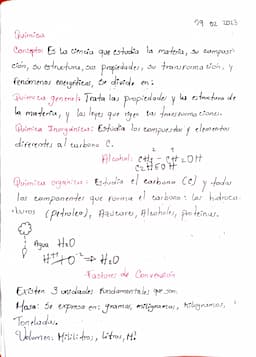 19 02 2023
Química
Concepto: Es la ciencia que estudia la materia, su composi-
ción, su estructura, sus propiedades, su transformación, y
fenómenos energéticos, se divide en:
Química general: Trata las propiedades y la estructura de
la materia, y las leyes que rigen las transformaciones.
Química Inorgánica: Estudia los compuestos y elementos
diferentes al carbono C.
Alcohol: CH3 - CH2OH
C2H5OH
Química orgánica: Estudia el carbono (C) y todos
los componentes que forma el carbono: los hidroca-
buros (petróleo), Azúcares, Alcoholes, proteínas.
Agua H2O
H+1 + O-2 → H2O
Factores de Conversión
Existen 3 unidades fundamentales que son:
Masa: Se expresa en: gramos, miligramos, kilogramos,
Toneladas.
Volumen: Mililitros, litros, M3